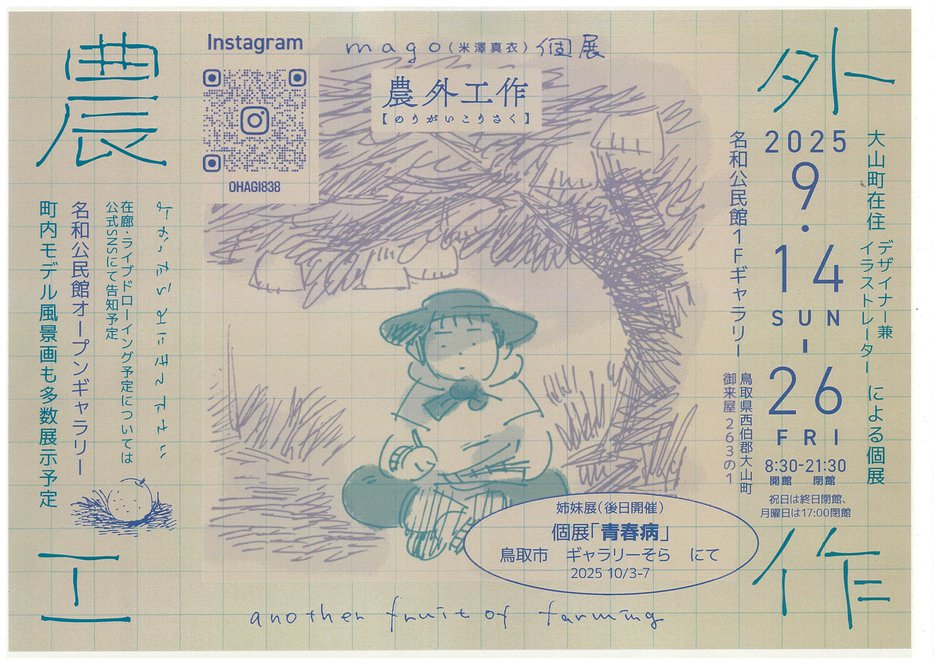 農外工作
mago(米澤真衣)個展
農外工作
【のうがいこうさく】
Instagram
OHAGI838
大山町在住
デザイナー兼
イラストレーター
による個展
2025
9.14
SUN
-
26
FRI
8:30-21:30
開館 閉館
祝日は終日閉館、
月曜日は17:00閉館
名和公民館1Fギャラリー
鳥取県西伯郡大山町
御来屋263の1
よかったらみにきて下さい
在廊・ライブドローイング予定については
公式SNSにて告知予定
名和公民館オープンギャラリー
町内モデル風景画も多数展示予定
姉妹展(後日開催)
個展「青春病」
鳥取市 ギャラリーそら にて
2025 10/3-7
another fruit of farming